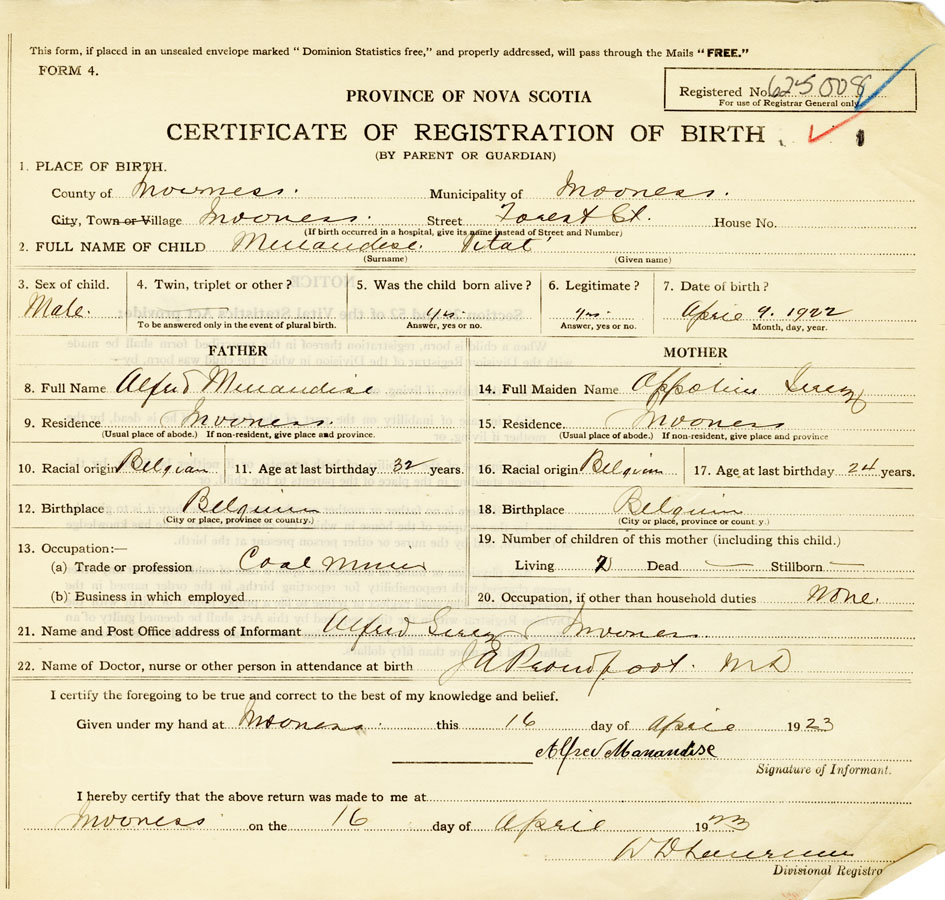 This form, if placed in an unsealed envelope marked "Dominion Statistics free," and properly addressed, will pass through the Mails "FREE."
FORM 4.
Registered No. 625008
For use of Registrar General only.
PROVINCE OF NOVA SCOTIA
CERTIFICATE OF REGISTRATION OF BIRTH
(BY PARENT OR GUARDIAN)
1. PLACE OF BIRTH.
County of Inverness. Municipality of Inverness.
City, Town or Village Inverness. Street Forest St. House No.
(If birth occurred in a hospital, give its name instead of Street and Number)
2. FULL NAME OF CHILD Menandise. Vital
(Surname) (Given name)
3. Sex of child. 4. Twin, triplet or other? 5. Was the child born alive? 6. Legitimate? 7. Date of birth?
Male. — yes. yes. April 9. 1922
To be answered only in the event of plural birth. Answer, yes or no. Answer, yes or no. Month, day, year.
FATHER MOTHER
8. Full Name Alfred Menandise 14. Full Maiden Name
9. Residence Inverness. 15. Residence Inverness
(Usual place of abode.) If non-resident, give place and province. (Usual place of abode.) If non-resident, give place and province
10. Racial origin Belgian 11. Age at last birthday 32 years. 16. Racial origin Belgian 17. Age at last birthday 24 years.
12. Birthplace Belgium 18. Birthplace Belgium
(City or place, province or country.) (City or place, province or country.)
13. Occupation:— 19. Number of children of this mother (including this child.)
(a) Trade or profession Coal Miner Living 2 Dead — Stillborn —
(b) Business in which employed 20. Occupation, if other than household duties None.
21. Name and Post Office address of Informant Alfred Inverness
22. Name of Doctor, nurse or other person in attendance at birth J A Proudfoot. MD
I certify the foregoing to be true and correct to the best of my knowledge and belief.
Given under my hand at Inverness this 16 day of April 1923
Alfred Manandise
Signature of Informant.
I hereby certify that the above return was made to me at
Inverness on the 16 day of April 1923
Divisional Registra